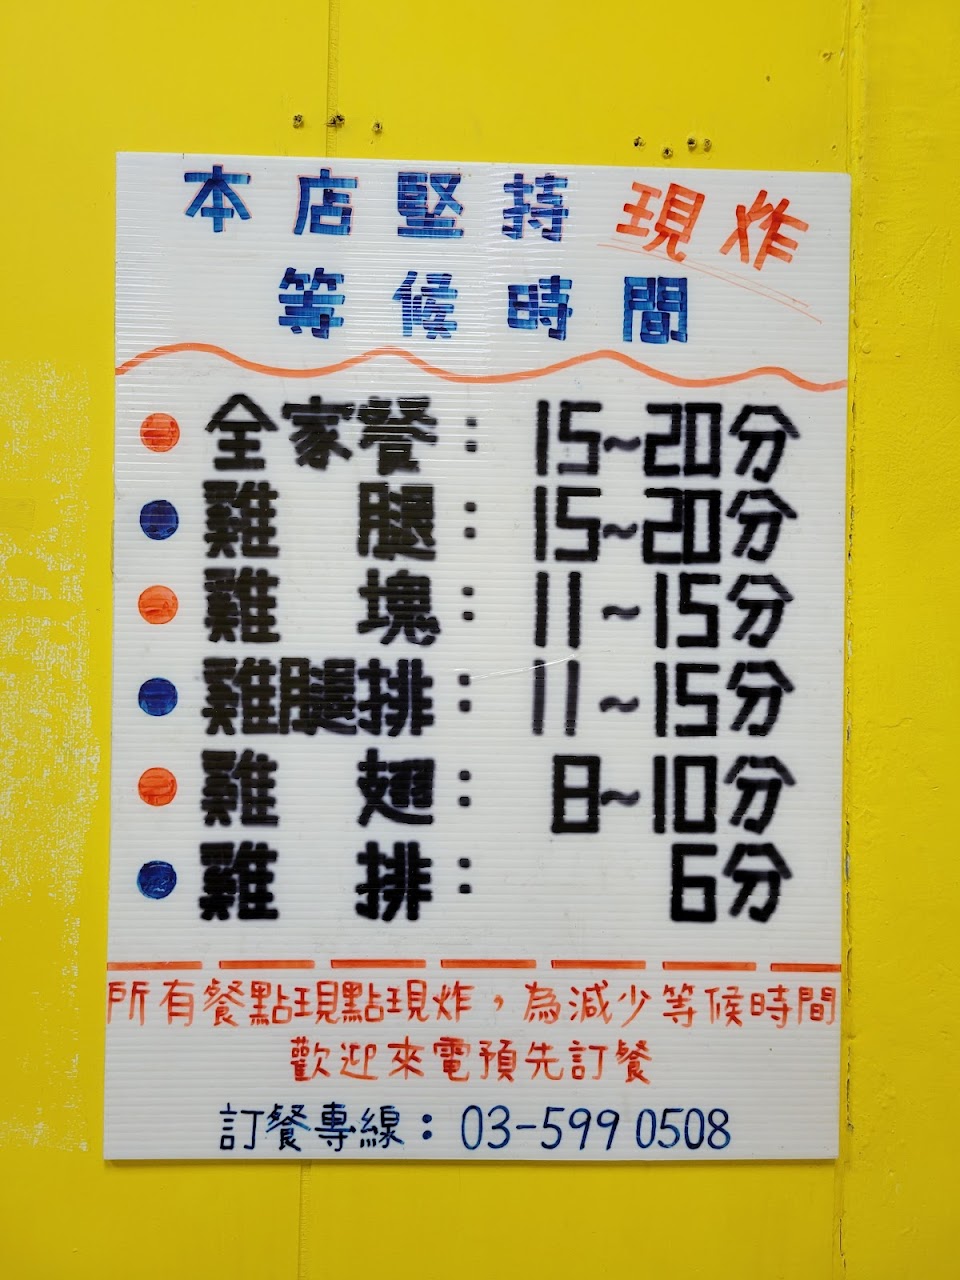 本店堅持現炸
等候時間
全家餐：15~20分
雞腿：15~20分
雞塊：11~15分
雞腿排：11~15分
雞翅：8~10分
雞排：6分
所有餐點現點現炸，為減少等候時間
歡迎來電預先訂餐
訂餐專線：03-599 0508